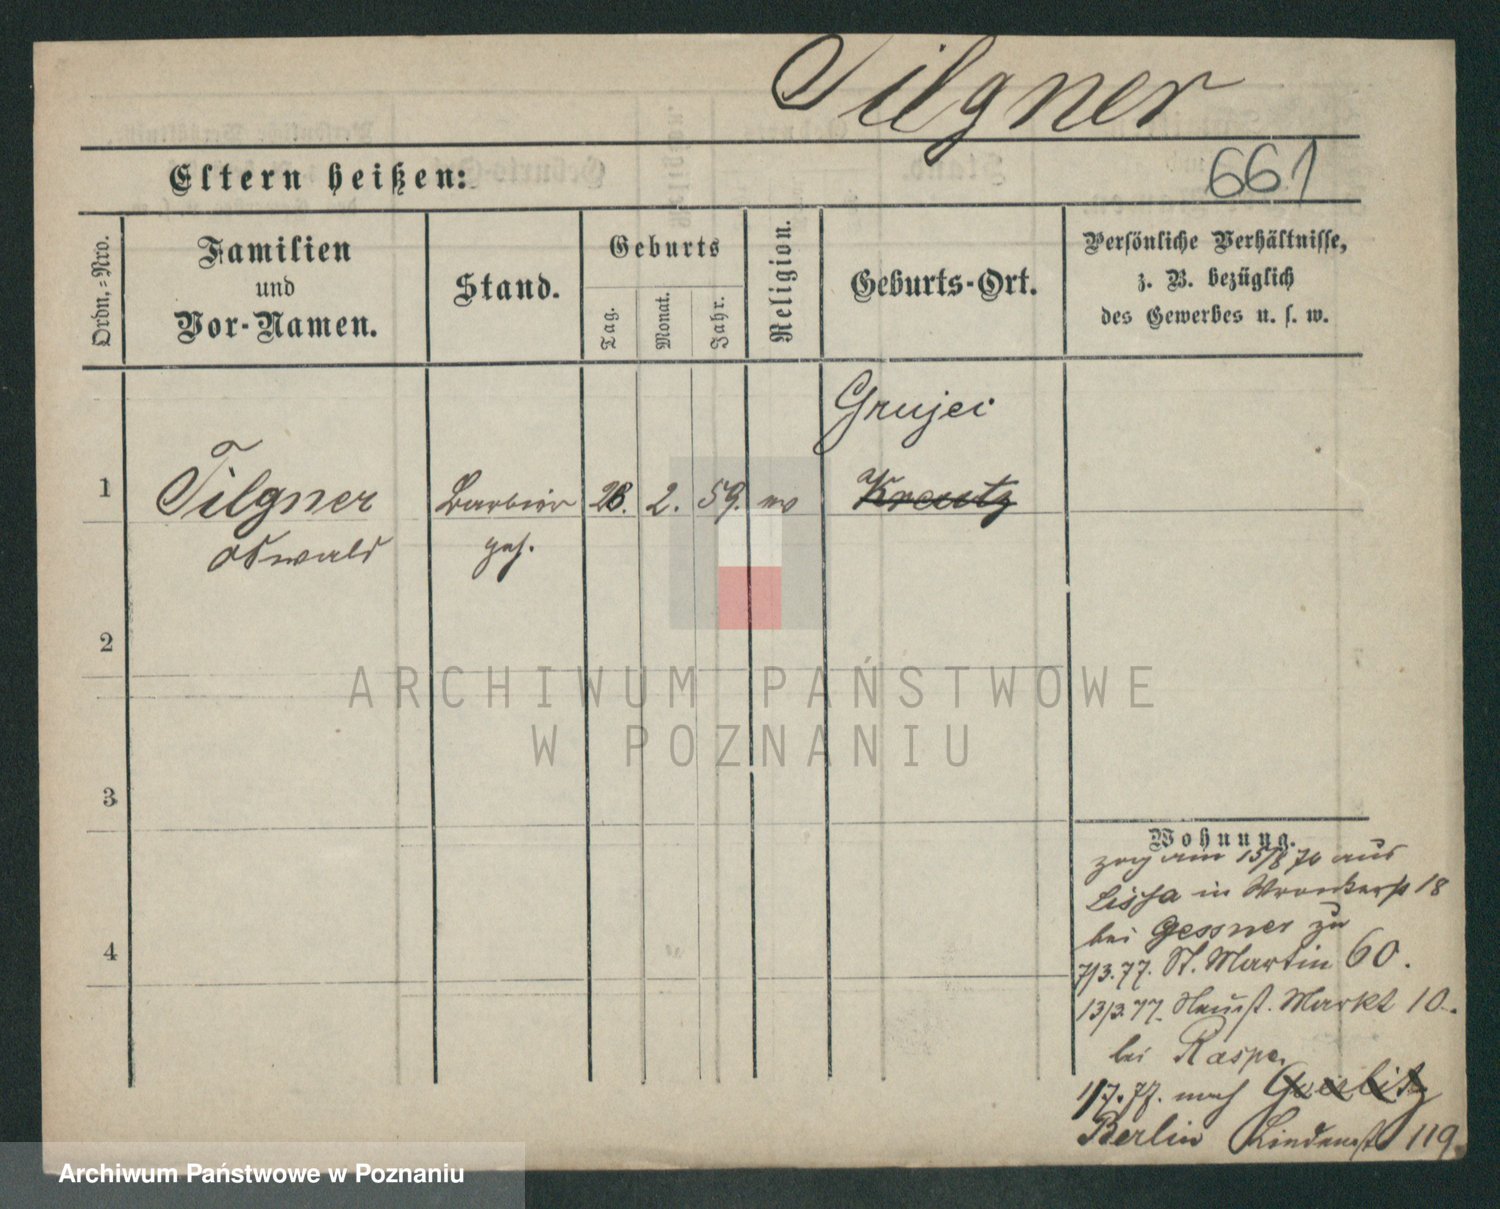 Tilgner
Eltern heißen:
661
Ordn.=Nro.
Familien
und
Vor-Namen.
Stand.
Geburts
Tag.
Monat.
Jahr.
Religion.
Geburts-Ort.
Persönliche Verhältnisse,
z. B. bezüglich
des Gewerbes u. s. w.
Grujec
1
Tilgner
Barbier
28.
2.
59.
ev
Kreutz
Oswald
geh.
2
ARCHIWUM PAŃSTWOWE
W POZNANIU
3
Wohnung.
zog am 15/8 76 aus
Lissa in Wronkerst 18
bei Gessner zu
4
7/3.77. St. Martin 60.
13/3.77. Neust. Markt 10.
bei Raspe.
1/7.77. nach Goerlitz
Berlin Lindenst 119.
Archiwum Państwowe w Poznaniu